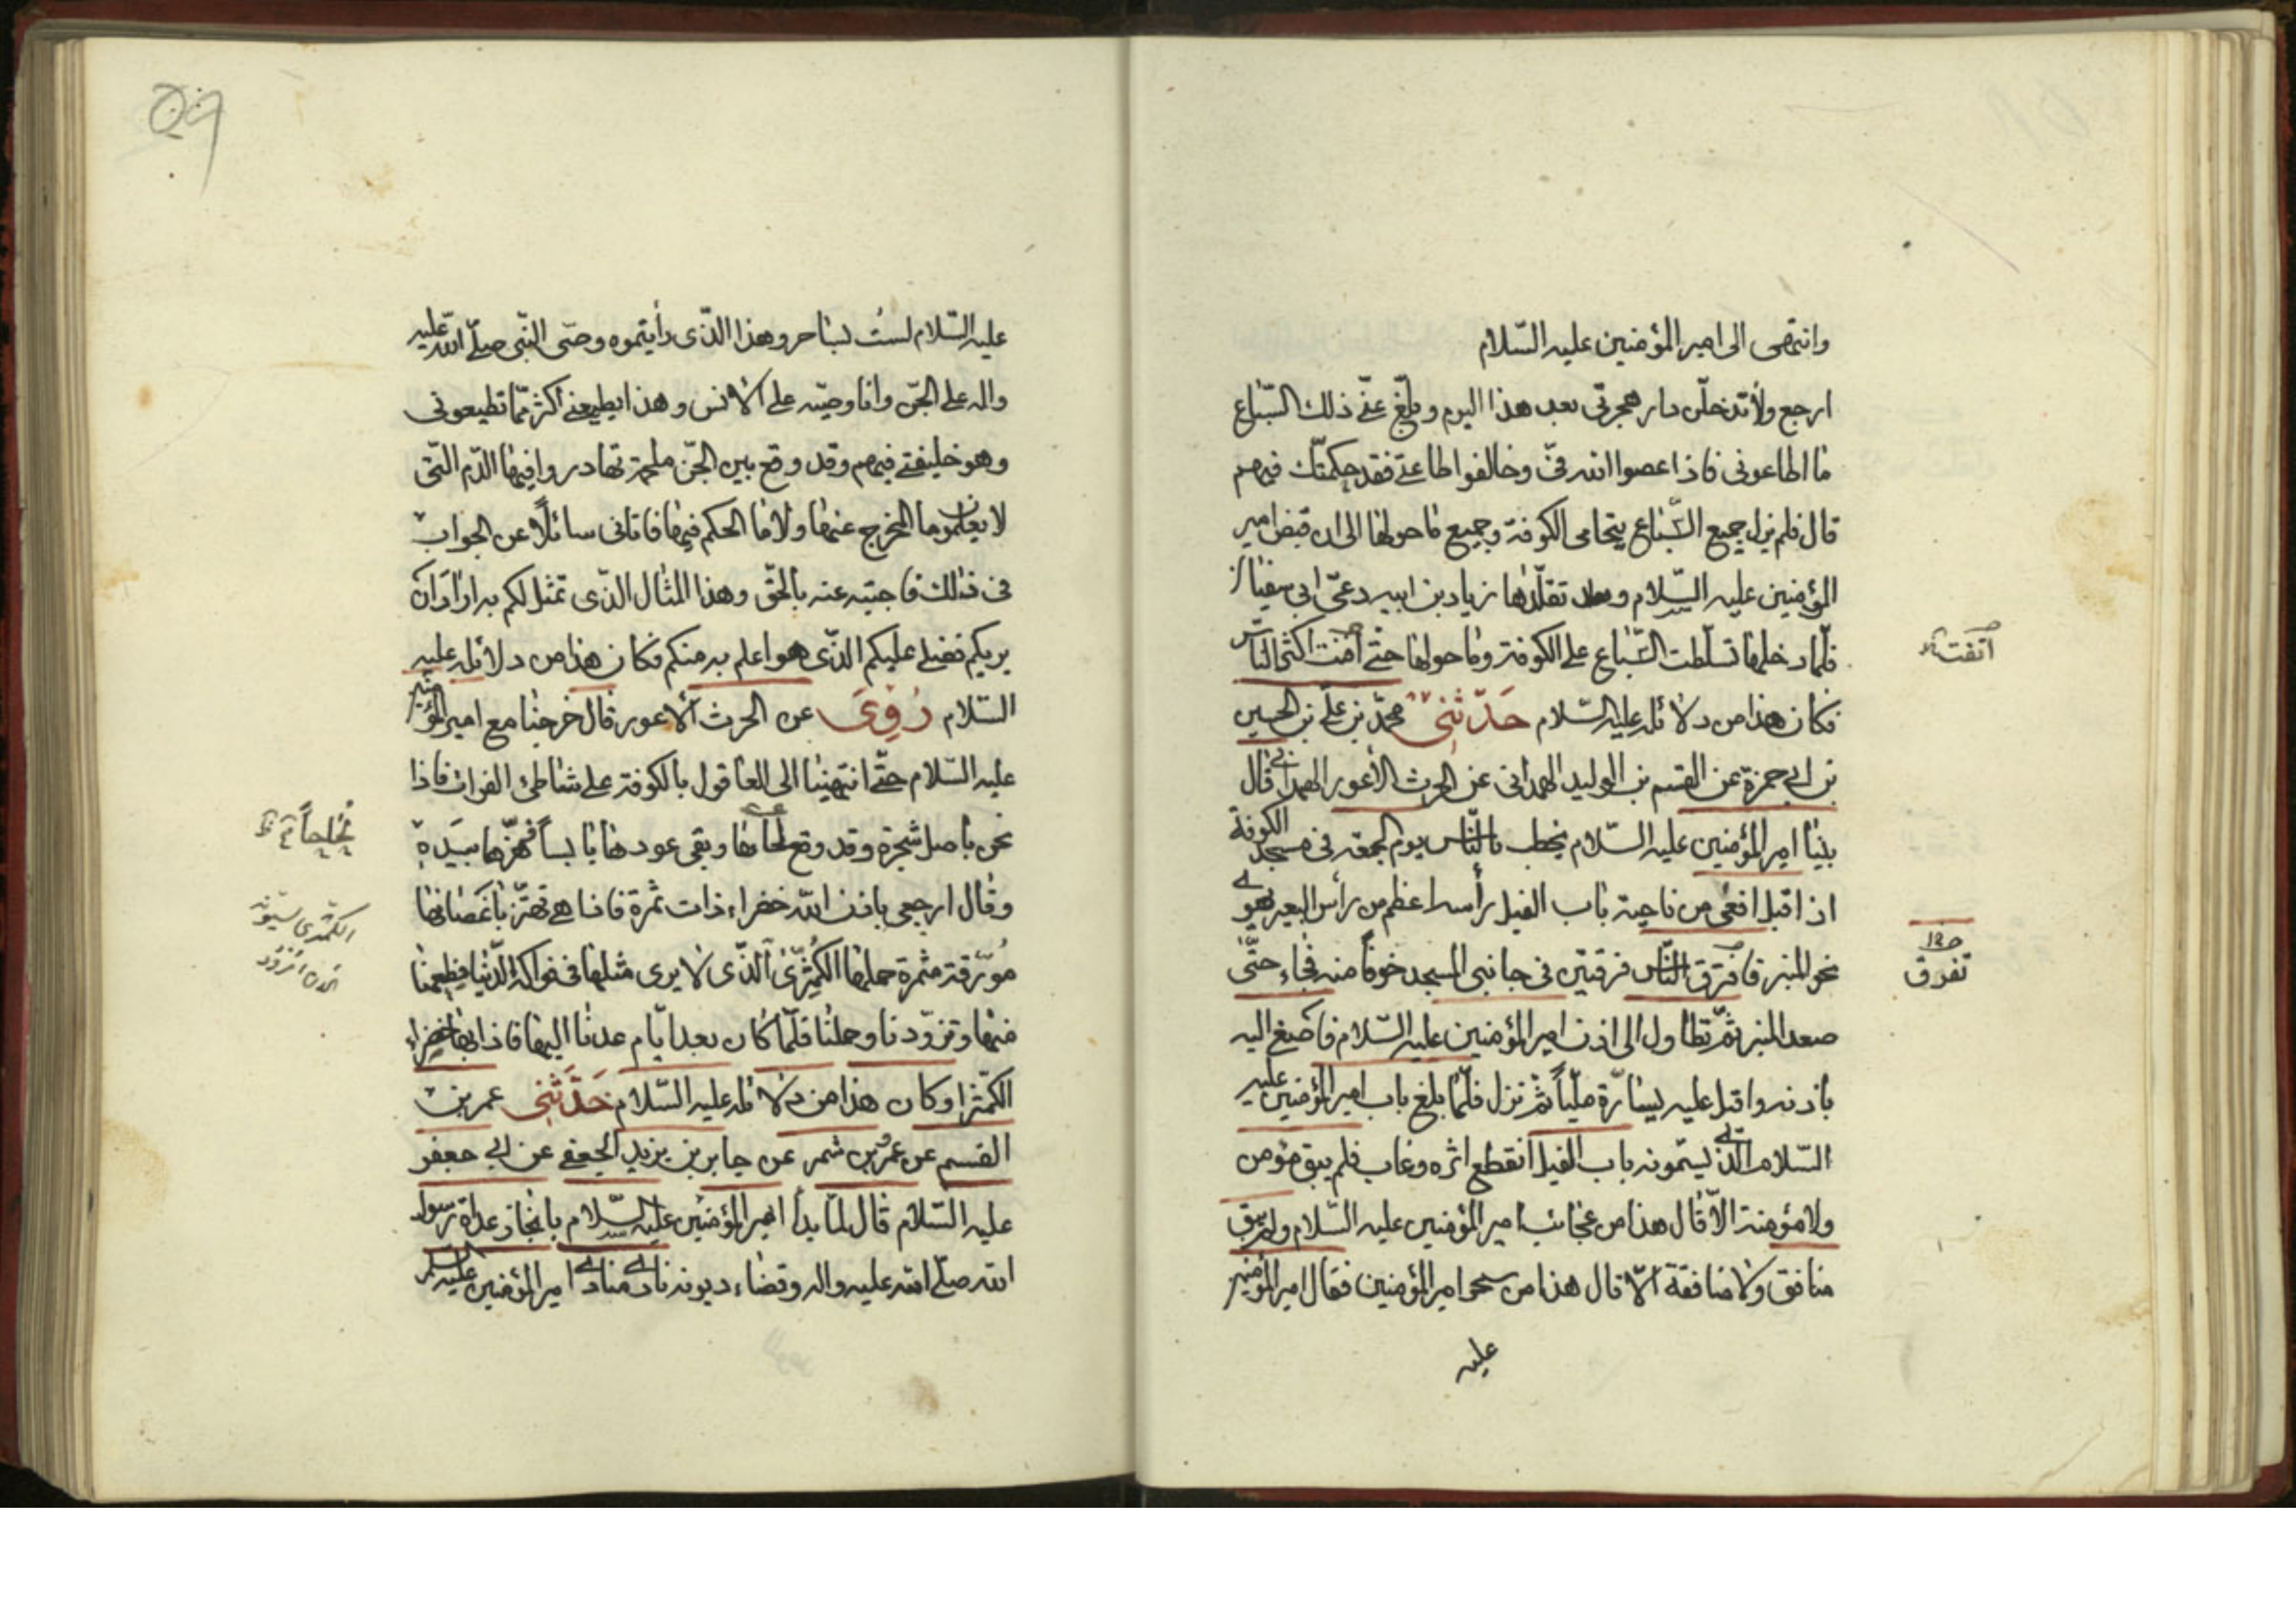 وانتهى الى امير المؤمنين عليه السّلام
ارجع ولا تدخلّن دار هجرتى بعد هذا اليوم وبلّغ عنّى ذلك السّباع
ما اطاعونى فاذا عصوا الله فىّ وخالفوا طاعتى فقد حكمتك فيهم
قال فلم يزل جميع السّباع يتحامى الكوفة وجميع ما حولها الى ان قبض امير
المؤمنين عليه السّلام وتقلّدها زياد بن ابيه دعىّ ابى سفيان
فلمّا دخلها تسلّطت السّباع على الكوفة وما حولها حتّى افنت اكثر النّاس
فكان هذا من دلائله عليه السّلام حَدّثَنِى محمّد بن علىّ بن الحسين
بن ابى حمزة عن القسم بن الوليد الهمدانى عن الحرث الأعور الهمدانى قال
بينا امير المؤمنين عليه السّلام يخطب بالنّاس يوم الجمعة فى مسجد الكوفة
اذ اقبل افعى من ناحية باب الفيل رأسه اعظم من رأس البعير يهوى
نحو المنبر فافترق النّاس فرقتين فى جانبى المسجد خوفاً منه فجاء حتّى
صعد المنبر ثمّ تطاول الى اذن امير المؤمنين عليه السّلام فاصغى اليه
باذنه واقبل عليه يسارّه مليّاً ثمّ نزل فلمّا بلغ باب امير المؤمنين عليه
السّلام الّذى يسمّونه باب الفيل انقطع اثره وغاب فلم يبق مؤمن
ولا مؤمنة الاّ قال هذا من عجائب امير المؤمنين عليه السّلام ولم يبق
منافق ولا منافقة الاّ قال هذا من سحر امير المؤمنين فقال امير المؤمنين
عليه
تفرق
٥٩
عليه السّلام لست بساحر وهذا الّذى رأيتموه وصّى النّبى صلّى الله عليه
واله على الجنّ وانا وصيّه على الانس وهذا يطيعنى اكثر ممّا تطيعونى
وهو خليفتى فيهم وقد وقع بين الجنّ ملحمة تهادروا فيها الدّم التّى
لا يعلمون ما المخرج عنها ولا ما الحكم فيها فاتانى سائلاً عن الجواب
فى ذلك فاجبته عنه بالحقّ وهذا المثال الّذى تمثل لكم به اراد ان
يريكم فضلى عليكم الّذى هو اعلم به منكم فكان هذا من دلائله عليه
السّلام رُوِىَ عن الحرث الاعور قال خرجنا مع امير المؤمنين
عليه السّلام حتّى انتهينا الى العاقول بالكوفة على شاطئ الفرات فاذا
نحن باصل شجرة وقد وقع لحاؤها وبقى عودها يابساً فهزّها بيَدِهِ
وقال ارجعى باذن الله خضراء ذات ثمرة فاذا هى تهتزّ باغصانها
مُورّقة مثمرة حملها الكمّثرى الّذى لا يرى مثلها فى فواكه الدّنيا فطعمنا
منها وتزوّدنا وحملنا فلمّا كان بعد ايّام عدنا اليها فاذا بها خضراء
الكمّثرا وكان هذا من دلائله عليه السّلام حَدَّثَنِى عمر بن
القسم عن عمر بن شمر عن جابر بن يزيد الجعفى عن ابى جعفر
عليه السّلام قال لمّا بدأ امير المؤمنين عليه السّلام بانجاز عداة رسول
الله صلّى الله عليه واله وقضاء ديونه نادى منادى امير المؤمنين عليه السلم